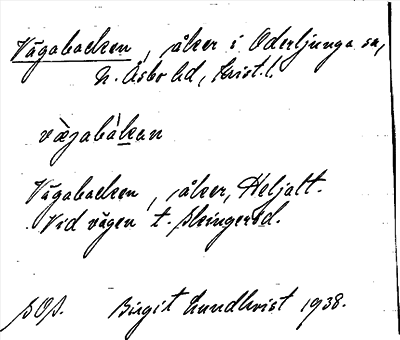 Vägabacken, åker i Oderljunga sn,
N. Åsbo hd, Krist. l.
væjabàkan
Vägabacken, åker, Heljalt.
Vid vägen t. Skingeröd.
SOS. Birgit Lundkvist 1938.